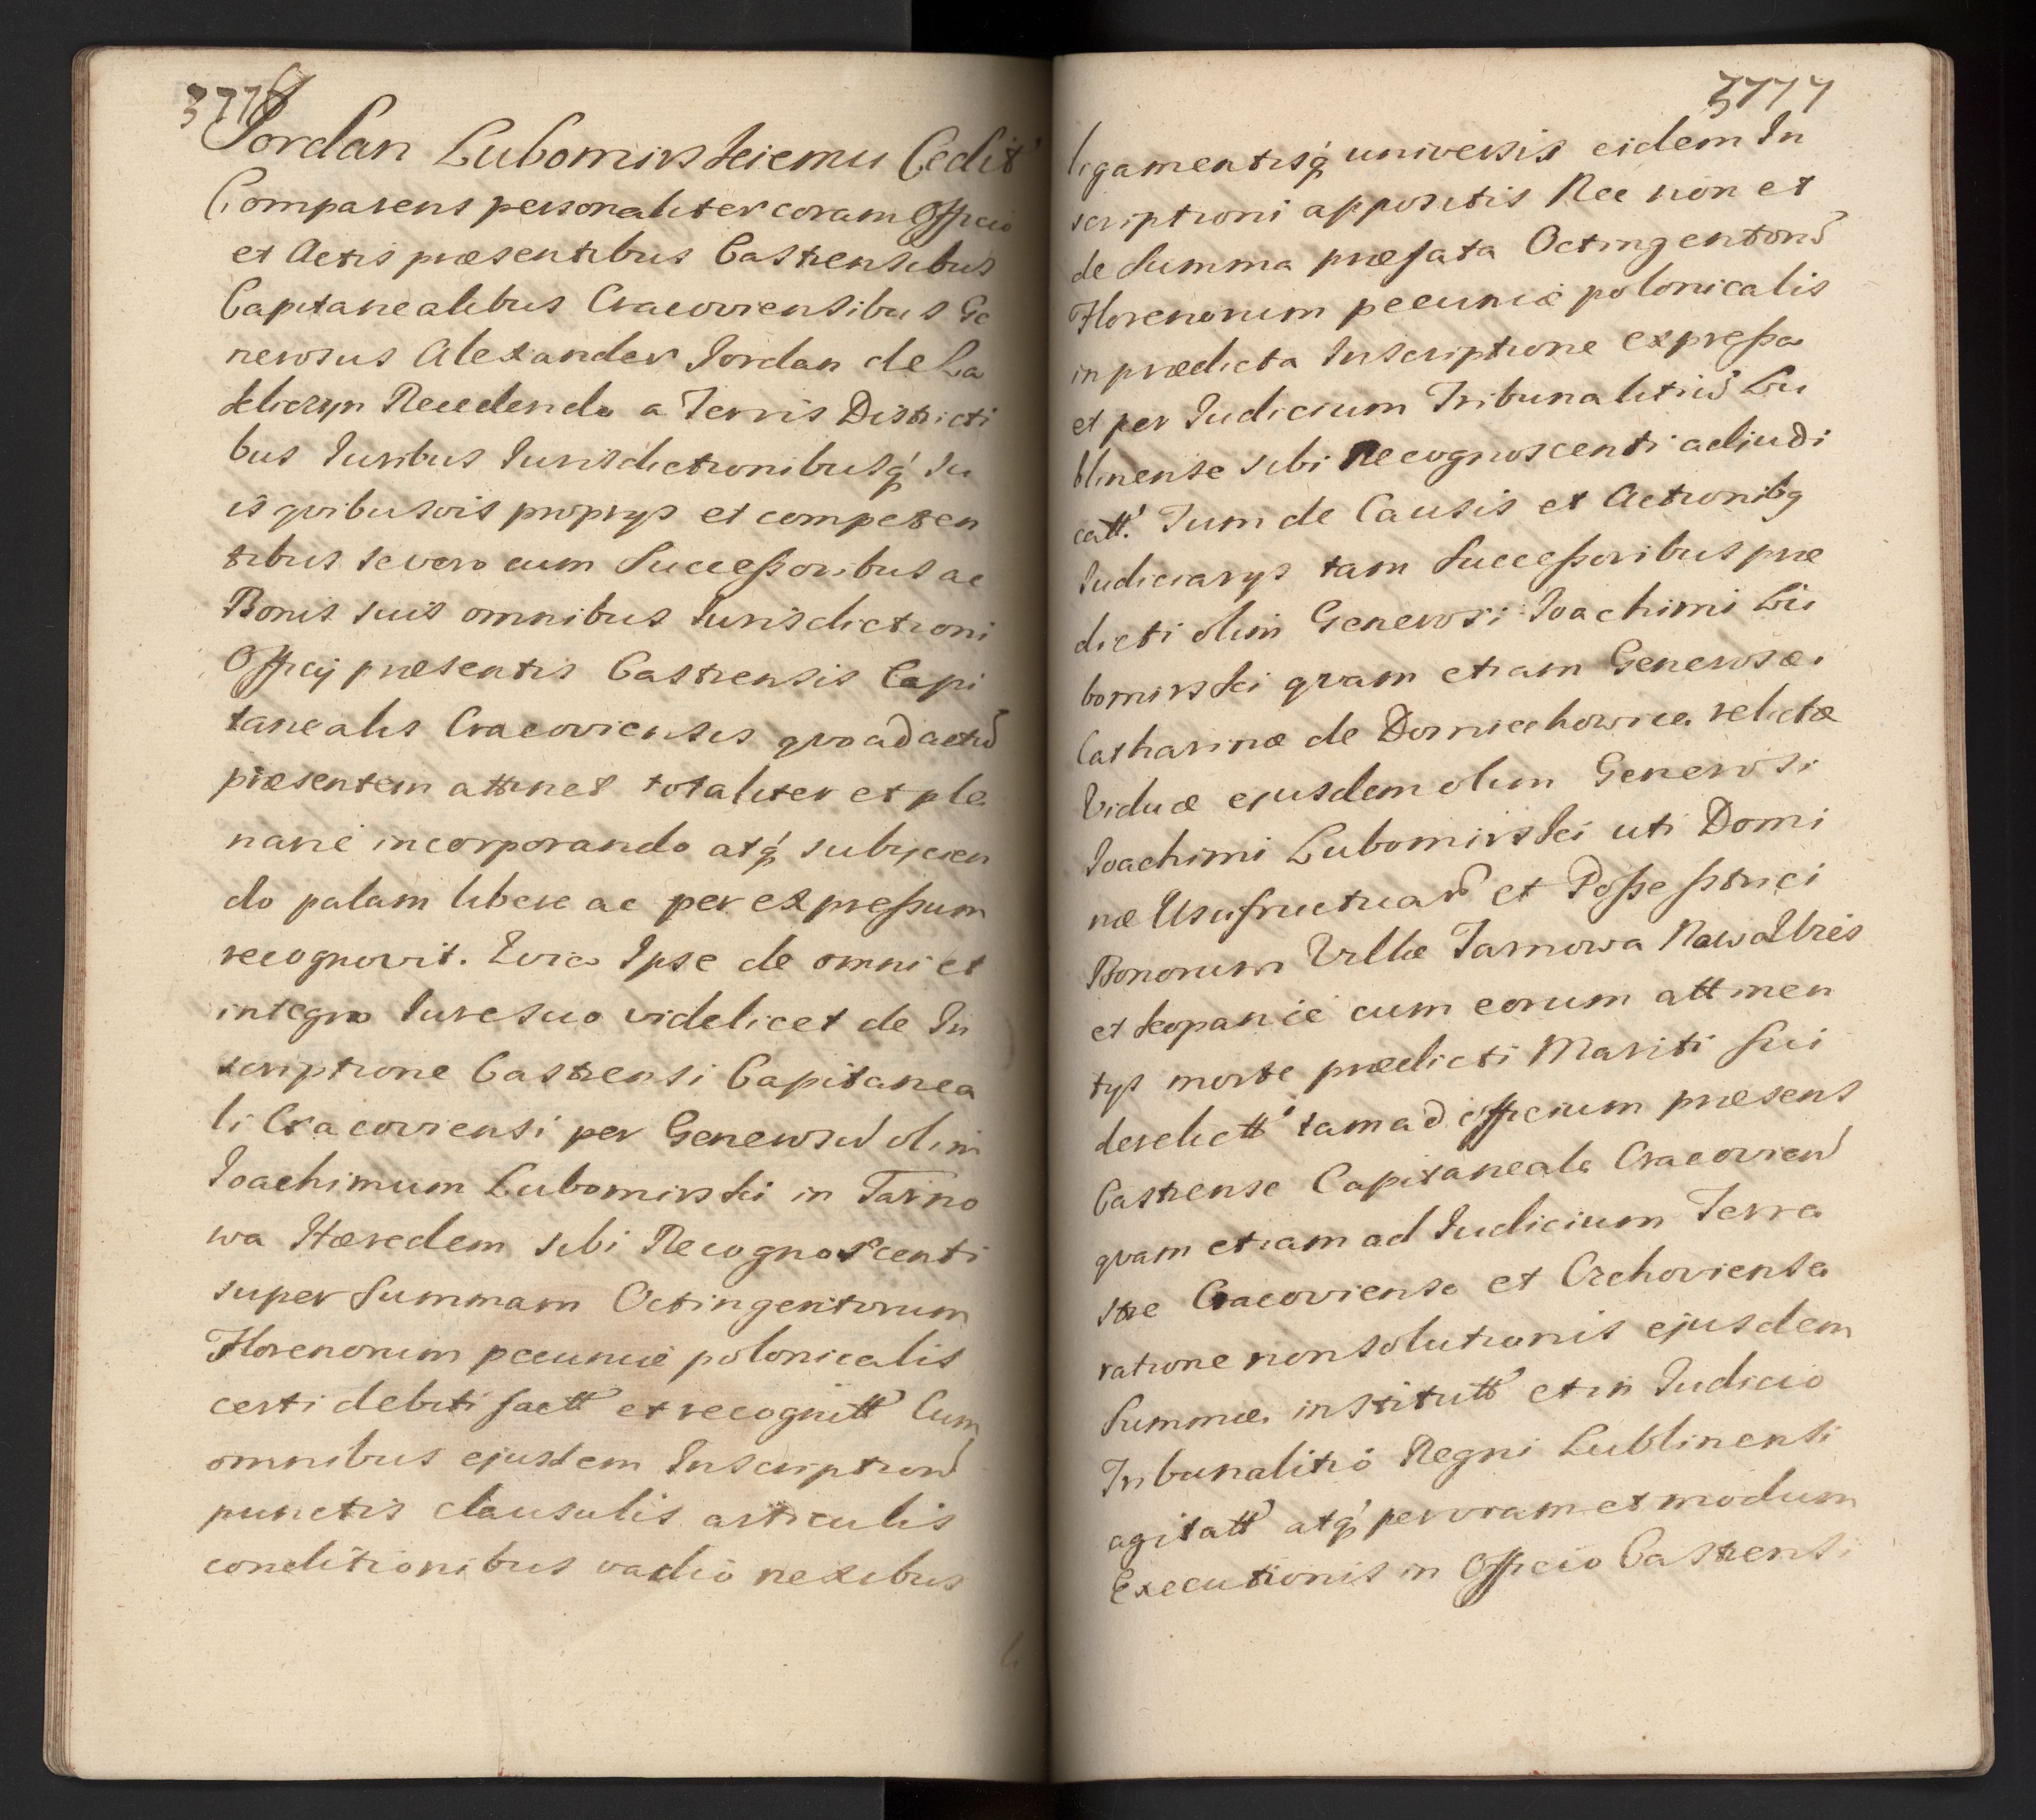 3776
Jordan Lubomirskiemu Cedit
Comparens personaliter coram Officio
et Actis præsentibus Castrensibus
Capitanealibus Cracoviensibus Ge
nerosus Alexander Jordan de Za
kliczyn Recedendo a Terris Districti
bus Juribus Jurisdictionibusq́ Su
is qvibusvis proprys et competen
tibus se vero cum Successoribus ac
Bonis suis omnibus Jurisdictioni
Officÿ præsentis Castrensis Capi
tanealis Cracoviensis qvoad actū
præsentem attinet totaliter et ple
narie incorporando atq́ subÿcien
do palam libere ac per expressum
recognovit. Qvia Ipse de omni et
integro Jure suo videlicet de In
scriptione Castrensi Capitanea
li Cracoviensi per Generosū olim
Joachimum Lubomirski in Tarno
wa Hæredem sibi Recognoscenti
super Summam Octingentorum
Florenorum pecuniæ polonicalis
certi debiti factt et recognitt Cum
omnibus ejusdem Inscription
punctis clausulis articulis
conditionibus vadio nexibus
3777
ligamentisq́ universis eidem In
scriptioni appositis Nec non et
de Summa præfata Octingentorū
Florenorum pecuniæ polonicalis
in prædicta Inscriptione expressa
et per Judicium Tribunalitiū Lu
blinense sibi Recognoscenti adiudi
catt. Tum de Causis et Actionibq
Judiciarys tam Successoribus præ
dicti olim Generosi Joachimi Lu
bomirski qvam etiam Generosæ
Catharinæ de relictæ
Viduæ ejusdem olim Generosi
Joachimi Lubomirski uti Domi
næ Usufructuar et
Bonorum Villæ Tarnowa Rawałtries
et kopanie cum eorum attinen
tys morte prædicti Mariti sui
derelictt tam ad officium præsens
Castrense Capitaneale Cracovien
qvam etiam ad Judicium Terre
stre Cracoviense et Czchoviense
ratione non solutionis ejusdem
Summæ institutt et in Judicio
Tribunalitio Regni Lublinensi
agitatt atq́ per viam et modum
Executionis in Officio Castrensi